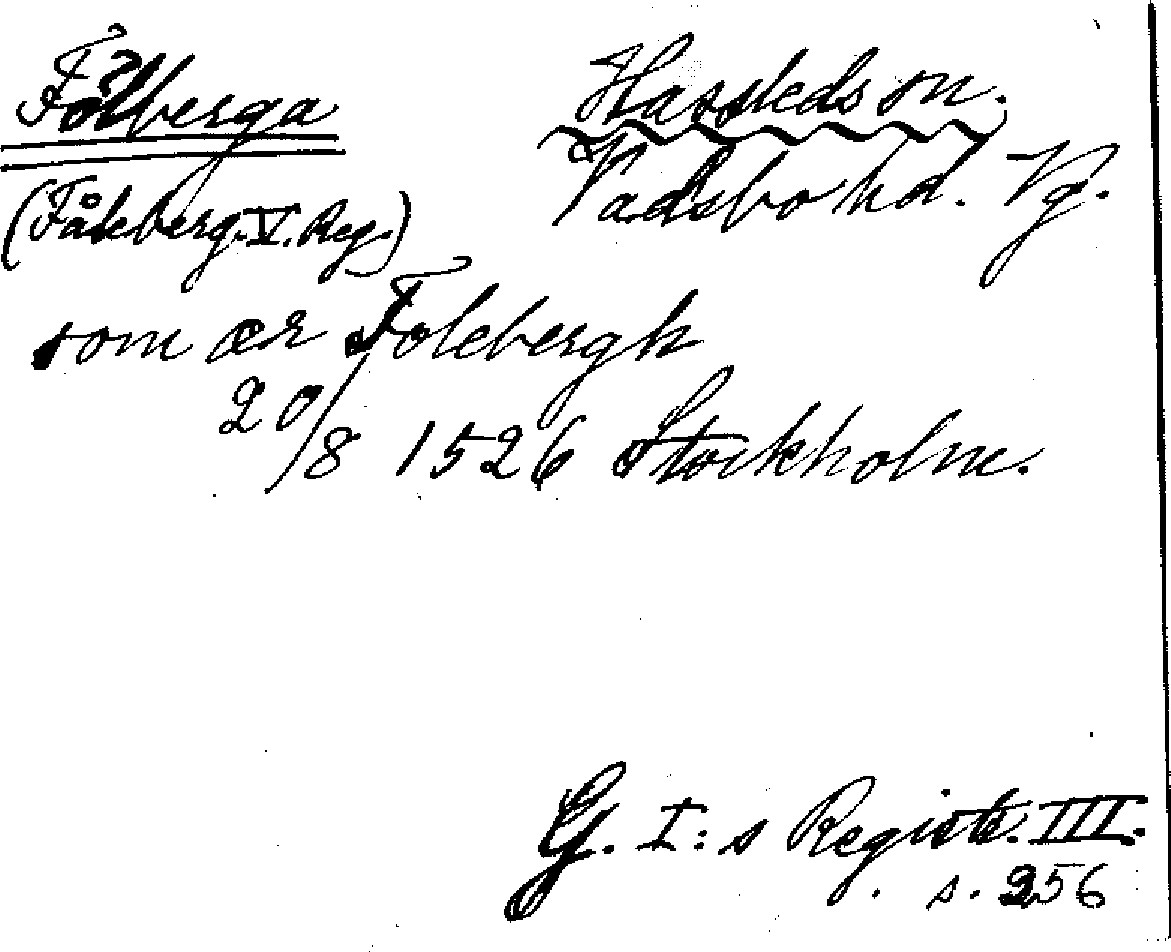 Fålberga Hassleds sn.
Vadsbo hd. Vg.
(Fåleberg. V. Reg.)
som ær Folebergh
20/8 1526 Stockholm.
G. I:s Registr. III.
s. 256